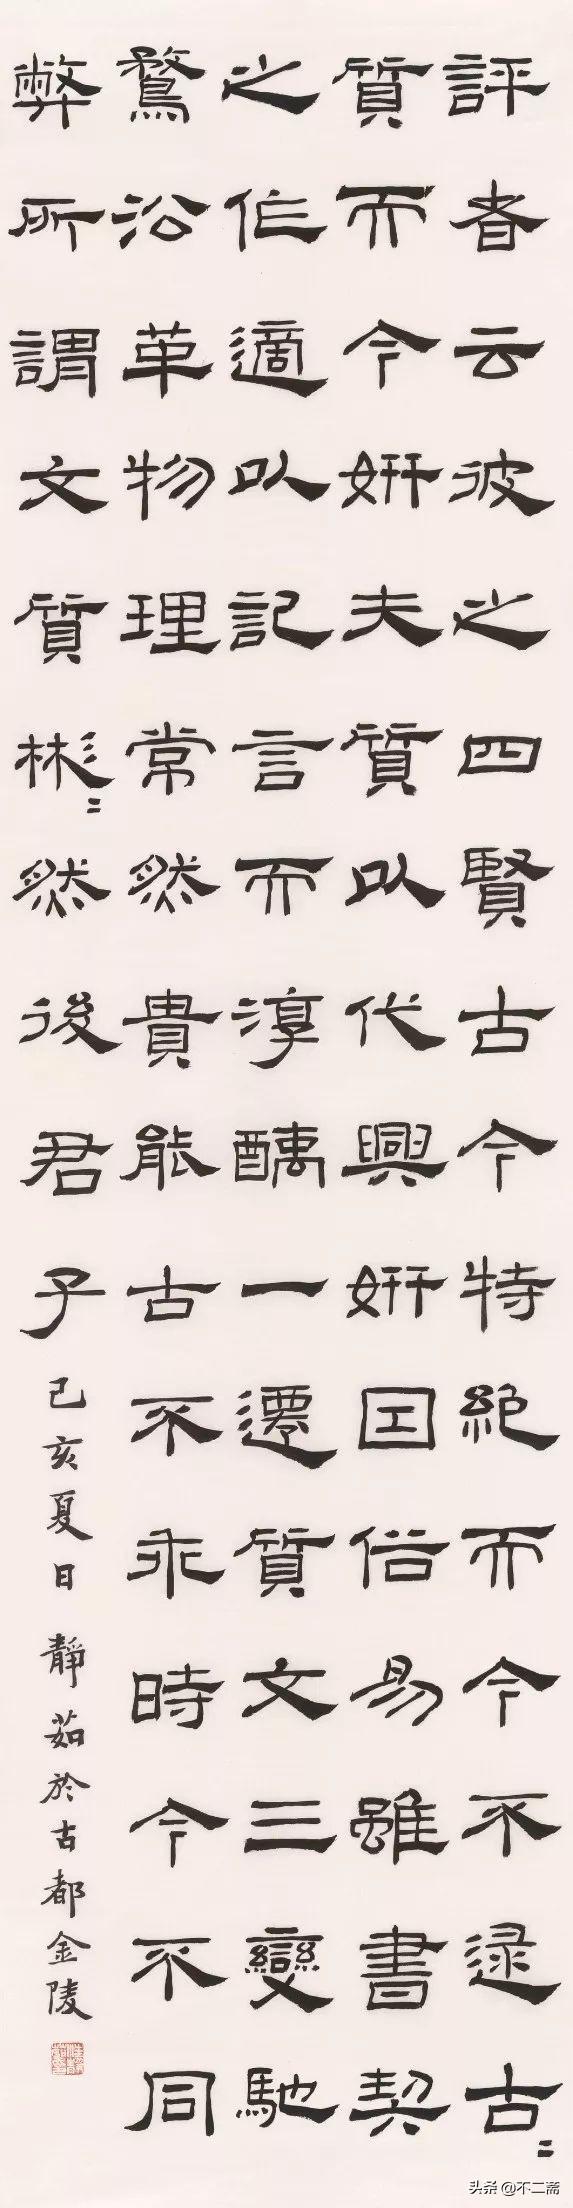 評者云彼之四賢古今特絕而今不逮古〻
質而今妍夫質以代興妍囙俗易雖書契
之作適以記言而淳醨一遷質文三變馳
鶩沿革物理常然貴能古不乖時今不同
弊所謂文質彬〻然後君子
己亥夏日 靜茹於古都金陵
头条 @不二斋